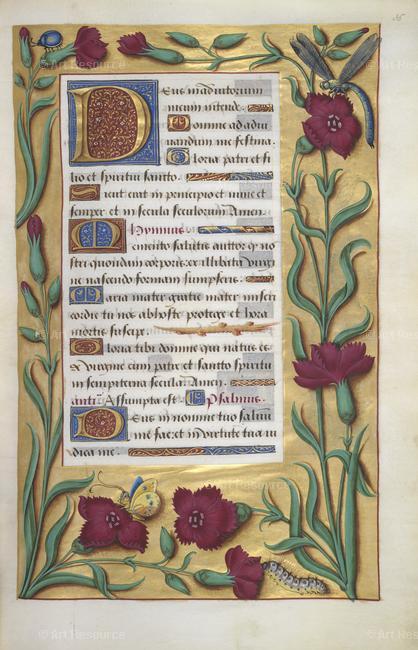 Deus in adiutorium
meum intende.
Domine ad adiu
uandum me festina.
Gloria patri et fi
lio et spiritui sancto.
Sicut erat in principio et nunc et
semper et in secula seculorum Amen.
Hymnus.
Memento salutis auctor q no
stri quondam corporis ex illibata virgi
ne nascendo formam sumpseris.
Maria mater gratie mater miseri
cordie tu nos ab hoste protege et hora
mortis suscipe.
Gloria tibi domine qui natus es
de virgine cum patre et sancto spiritu
in sempiterna secula Amen.
anti Assumpta est. Psalmus.
Deus in nomine tuo saluu
me fac: et in virtute tua iu
dica me.
© Art Resource